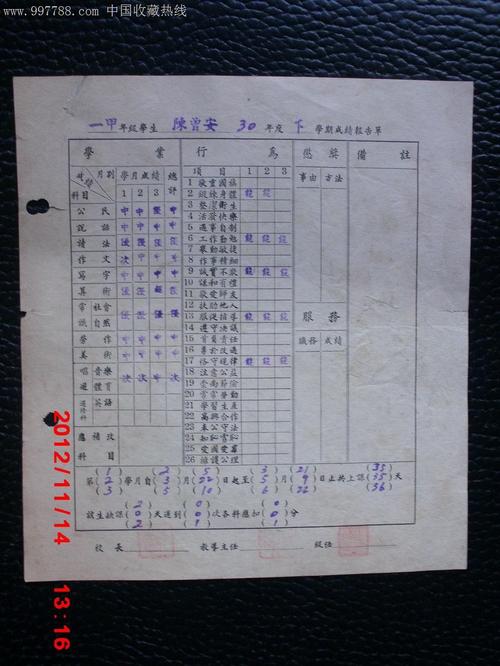 www.997788.com 中国收藏热线
一甲年級學生 陳曾安 30年度 下 學期成績報告單
學業 行為 懲獎 備註
月別 成績 科目 學月成績 1 2 3 總評
項目 1 2 3
事由 方法
公民 中 中 中 中
說話 中 中 中 中
讀法 優 優 優 優
作文 次 中 中 中
寫字 中 中 中 中
算術
常識 社會 自然
勞作 中 中 中 中
美術 中 中 中 中
唱遊 音樂 體育 次 中 次 次
選修科 英語
應補救科目
1 敬重國旗
2 鍛鍊身體
3 整潔衛生
4 活潑快樂
5 遇事自制
6 工作勤勉
7 舉動敏捷
8 作事精細
9 誠實不欺
10 謙和有禮
11 敬愛師友
12 扶助他人
13 服從指導
14 遵守決議
15 肯負責任
16 勇於改過
17 恪守規律
18 注意公益
20 常常勞動
21 學習生產
22 高興合作
23 奉公守法
24 知恥雪恥
25 愛國愛羣
26 擁護公理
服務
職務 成績
第(1)(2)(3)學月自(2)(3)(5)月(5)(22)(10)日起至(3)(5)(6)月(21)(9)(22)日止共上課(35)(35)(36)天
該生缺課(2)(0)(2)天遲到(0)(0)(1)次各科應扣(2)(0)(1)分
校長 教導主任 級任
2012/11/14 13:16